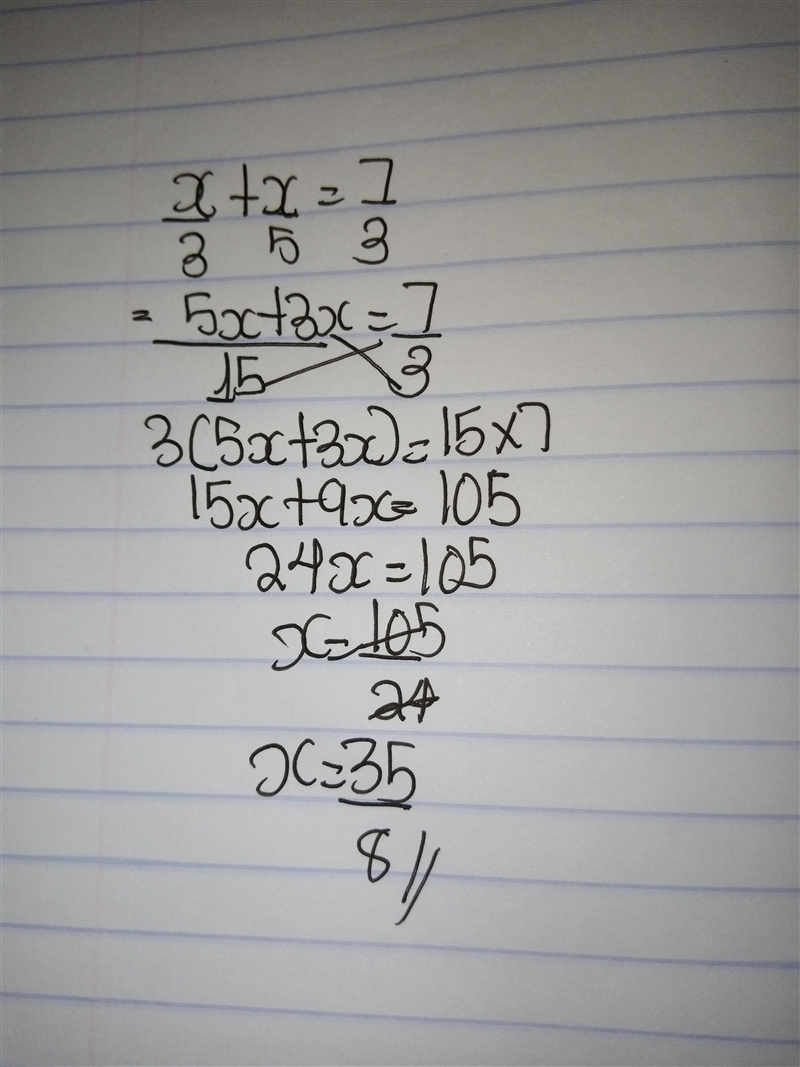 x + x = 7
3 5 3
= 5x+3x = 7
15 3
3(5x+3x) = 15×7
15x+9x = 105
24x = 105
x = 105
24
x = 35
8 //